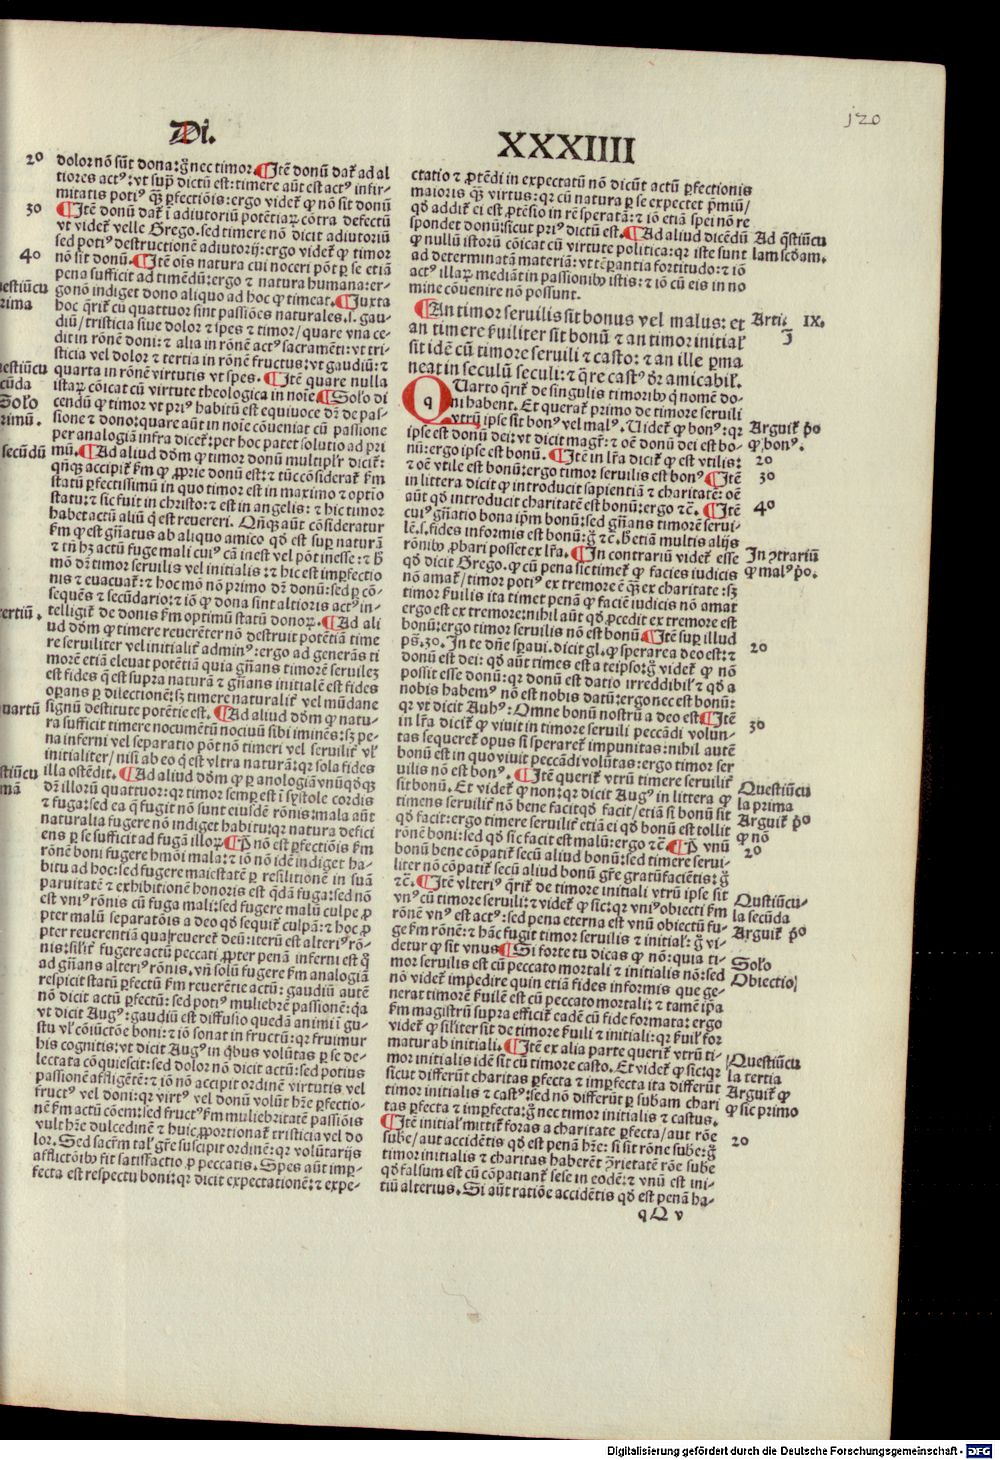 Di.
XXXIIII
120
20
dolor nō sūt dona: g̃ nec timor. ¶ Itē donū dat̄ ad al
tiores actꝰ: vt supͣ dictū est: timere aūt est actꝰ infir-
mitatis potiꝰ q̃ꝫ ꝑfectiōis: ergo videt̄ ꝙ nō sit donū
30
¶ Itē donū dat̄ ī adiutoriū potētiaꝝ cōtra defectū
vt videt̄ velle Grego. sed timere nō dicit adiutoriū
sed potiꝰ destructionē adiutorij: ergo videt̄ ꝙ timor
40
nō sit donū. ¶ Itē oīs natura cui noceri pōt ꝑ se etiā
pena sufficit ad timēdū: ergo ⁊ natura humana: er-
go nō indiget dono aliquo ad hoc ꝙ timeat. ¶ Iuxta
hoc q̄rit̄ cū quattuor sint passiōes naturales. s. gau-
diū / tristicia siue dolor ⁊ spes ⁊ timor / quare vna ce-
dit in rōnē doni: ⁊ alia in rōnē actꝰ sacramēti: vt tri-
sticia vel dolor ⁊ tertia in rōnē fructus: vt gaudiū: ⁊
quarta in rōnē virtutis vt spes. ¶ Itē quare nulla
istaꝝ cōicat cū virtute theologica in noīe. ¶ Solo di
cendū ꝙ timor vt priꝰ habitū est equiuoce d̄r de pas-
sione ⁊ dono: quare aūt in noīe cōueniat cū passione
per analogiā infra dicet̄: per hoc patet solutio ad pri
mū. ¶ Ad aliud dōm ꝙ timor donū multiplr̄ dicit̄:
qñqꝫ accipit̄ ẜm ꝙ ꝓprie donū est: ⁊ tūc cōsiderat̄ ẜm
statū ꝑfectissimū in quo timor est in maximo ⁊ optio
statu: ⁊ sic fuit in christo: ⁊ est in angelis: ⁊ hic timor
habet actū aliū q̄ est reuereri. Qñqꝫ aūt cōsideratur
ẜm ꝙ est gñatus ab aliquo amico qd̄ est supͣ naturā
⁊ tñ hꝫ actū fuge mali cuiꝰ cā inest vel pōt inesse: ⁊ h̄
mō d̄r timor seruilis vel initialis: ⁊ hic est imꝑfectio
nis ⁊ euacuat̄: ⁊ hoc mō nō primo d̄r donū: sed ꝑ cō-
sequēs ⁊ secūdario: ⁊ iō ꝙ dona sint altioris actꝰ in-
telligit̄ de donis ẜm optimū statū donoꝝ. ¶ Ad ali
ud dōm ꝙ timere reuerēter nō destruit potētiā time
re seruiliter vel initialit̄ adminꝰ: ergo ad generās ti
morē etiā eleuat potētiā quia gñans timorē seruileꝫ
est fides q̄ est supra naturā ⁊ gñans initialē est fides
oꝑans ꝑ dilectionē: sꝫ timere naturalit̄ vel mūdane
signū destitute potētie est. ¶ Ad aliud dōm ꝙ natu-
ra sufficit timere nocumētū nociuū sibi iminēs: sꝫ pe-
na inferni vel separatio pōt nō timeri vel seruilit̄ vl̄
initialiter / nisi ab eo q̄ est vltra naturā: qꝛ sola fides
illa ostēdit. ¶ Ad aliud dōm ꝙ ꝑ analogiā vnūqd̄qꝫ
d̄r illorū quattuor: qꝛ timor semꝑ est ī systole cordis
⁊ fuga: sed ea q̄ fugit nō sunt eiusdē rōnis: mala aūt
naturalia fugere nō indiget habitu: qꝛ natura defici
ens ꝑ se sufficit ad fugā illoꝝ. ¶ P̄ nō est ꝑfectiōis ẜm
rōnē boni fugere hmōi mala: ⁊ iō nō idē indiget ha-
bitu ad hoc: sed fugere maiestatē ꝑ resilitionē in suā
paruitatē ⁊ exhibitionē honoris est q̄dā fuga: sed nō
est vniꝰ rōnis cū fuga mali: sed fugere malū culpe ꝓ
pter malū separatōis a deo qd̄ sequit̄ culpā: ⁊ hoc ꝓ
pter reuerentiā qua reueret̄ deū: iterū est alteriꝰ rō-
nis: silr̄ fugere actū peccati ꝓpter penā inferni est q̄
ad gñans alteriꝰ rōnis. vñ solū fugere ẜm analogiā
respicit statū ꝑfectū ẜm reuerētie actū: gaudiū autē
nō dicit actū ꝑfectū: sed potiꝰ muliebrē passionē: q̄a
vt dicit Augꝰ: gaudiū est diffusio quedā animi ī gu-
stu vl̄ cōiūctōe boni: ⁊ iō sonat in fructū: qꝛ fruimur
his cognitis: vt dicit Augꝰ in qͥbus volūtas ꝑ se de-
lectata cōquiescit: sed dolor nō dicit actū: sed potius
passionē affligētē: ⁊ iō nō accipit ordinē virtutis vel
fructꝰ vel doni: qꝛ virtꝰ vel donū volūt h̄re ꝑfectio-
nē ẜm actū cōem: sed fructꝰ ẜm muliebritatē passiōis
vult h̄re dulcedinē ⁊ huic ꝓportionat̄ tristicia vel do
lor. Sed sacrm̄ tal̄ gr̄e suscipit ordinē: qꝛ volūtarijs
afflictōibꝰ fit satisfactio ꝓ peccatis. Spes aūt imꝑ-
fecta est respectu boni: qꝛ dicit expectationē: ⁊ expe-
estiūcu
rima
estiūcu
cūda
Solo
rimū.
secūdū
ertiū.
uartū
stiūcu
mā
ctatio ⁊ ꝓtēdi in expectatū nō dicūt actū ꝑfectionis
maioris q̃ꝫ virtus: qꝛ cū natura ꝑ se expectet p̄miū /
qd̄ addit̄ ei est ꝓtēsio in rē speratā: ⁊ iō etiā spei nō re
spondet donū: sicut priꝰ dictū est. ¶ Ad aliud dicēdū
ꝙ nullū istorū cōicat cū virtute politica: qꝛ iste sunt
ad determinatā materiā: vt tēꝑantia fortitudo: ⁊ iō
actꝰ illaꝝ mediāt in passionibꝰ istis: ⁊ iō cū eis in no
mine cōuenire nō possunt.
Ad q̄stiūcu
lam secd̄am.
¶ An timor seruilis sit bonus vel malus: et
an timere ẜuiliter sit bonū ⁊ an timor initial̄
sit idē cū timore seruili ⁊ casto: ⁊ an ille ꝑma
neat in seculū seculi: ⁊ q̄re castꝰ d̄r amicabil̄.
Arti. IX.
J
q
QUarto q̄rit̄ de singulis timoribꝰ q̄ nomē do-
ni habent. Et querat̄ primo de timore seruili
vtrū ipse sit bonꝰ vel malꝰ. Uidet̄ ꝙ bonꝰ: qꝛ
ipse est donū dei: vt dicit magr̄: ⁊ oē donū dei est bo-
nū: ergo ipse est bonū. ¶ Itē in lr̄a dicit̄ ꝙ est vtilis:
⁊ oē vtile est bonū: ergo timor seruilis est bonꝰ ¶ Itē
in littera dicit̄ ꝙ introducit sapientiā ⁊ charitatē: oē
aūt qd̄ introducit charitatē est bonū: ergo ⁊c̄. ¶ Itē
cuiꝰ gñatio bona ipm̄ bonū: sed gñans timorē serui-
lē. s. fides informis est bonū: g̃ ⁊c̄. h̄ etiā multis alijs
rōnibꝰ ꝓbari posset ex lr̄a. ¶ In contrariū videt̄ esse
qd̄ dicit Grego. ꝙ cū pena sic timet̄ ꝙ facies iudicis
nō amat̄ / timor potiꝰ ex tremore ē q̃ꝫ ex charitate: sꝫ
timor ẜuilis ita timet penā ꝙ faciē iudicis nō amat
ergo est ex tremore: nihil aūt qd̄ ꝓcedit ex tremore est
bonū: ergo timor seruilis nō est bonū ¶ Itē suꝑ illud
pꝰ. 30. In te dñe speraui. dicit gl. ꝙ sperare a deo est: ⁊
donū est dei: qd̄ aūt times est a teipso: g̃ videt̄ ꝙ nō
possit esse donū: qꝛ donū est datio irreddibil̄ ⁊ qd̄ a
nobis habemꝰ nō est nobis datū: ergo nec est bonū:
qꝛ vt dicit Aubꝰ: Omne bonū nostrū a deo est ¶ Itē
in lr̄a dicit̄ ꝙ viuit in timore seruili peccādi volun-
tas sequeret̄ opus si speraret̄ impunitas: nihil autē
bonū est in quo viuit peccādi volūtas: ergo timor ser
uilis nō est bonꝰ. ¶ Itē querit̄ vtrū timere seruilit̄
sit bonū. Et videt̄ ꝙ non: qꝛ dicit Augꝰ in littera ꝙ
timens seruilit̄ nō bene facit qd̄ facit / etiā si bonū sit
qd̄ facit: ergo timere seruilit̄ etiā ei qd̄ bonū est tollit
rōnē boni: sed qd̄ sic facit est malū: ergo ⁊c̄ ¶ P̄ vnū
bonū bene cōpatit̄ secū aliud bonū: sed timere serui-
liter nō cōpatit̄ secū aliud bonū gr̄e gratūfaciētis: g̃
⁊c̄. ¶ Itē vlteriꝰ q̄rit̄ de timore initiali vtrū ipse sit
vnꝰ cū timore seruili: ⁊ videt̄ ꝙ sic: qꝛ vniꝰ obiecti ẜm
rōnē vnꝰ est actꝰ: sed pena eterna est vnū obiectū fu-
ge ẜm rōnē: ⁊ hāc fugit timor seruilis ⁊ initial̄: g̃ vi-
detur ꝙ sit vnus ¶ Si forte tu dicas ꝙ nō: quia ti-
mor seruilis est cū peccato mortali ⁊ initialis nō: sed
nō videt̄ impedire quin etiā fides informis que ge-
nerat timorē ẜuilē est cū peccato mortali: ⁊ tamē ip̄a
ẜm magistrū supra efficit̄ eadē cū fide formata: ergo
videt̄ ꝙ silit̄er sit de timore ẜuili ⁊ initiali: qꝛ ẜuil̄ for
matur ab initiali. ¶ Itē ex alia parte querit̄ vtrū ti-
mor initialis idē sit cū timore casto. Et videt̄ ꝙ sic: qꝛ
sicut differūt charitas ꝑfecta ⁊ imꝑfecta ita differūt
timor initialis ⁊ castꝰ: sed nō differūt ꝑ subam chari
tas ꝑfecta ⁊ imꝑfecta: g̃ nec timor initialis ⁊ castus.
¶ Itē initial̄ mittit̄ foras a charitate ꝑfecta / aut rōe
sube / aut accidētis qd̄ est penā h̄re: si sit rōne sube: g̃
timor initialis ⁊ charitas haberēt ꝯrietatē rōe sube
qd̄ falsum est cū cōpatiant̄ sese in eodē: ⁊ vnū est ini-
tiū alterius. Si aūt ratiōe accidētis qd̄ est penā ha-
Arguit̄ pͦo
ꝙ bonꝰ.
20
30
40
In ꝯtrariū
ꝙ malꝰ pͦo.
20
30
Questiūcu
la prima
Arguit̄ pͦo
ꝙ nō
20
Questiūcu-
la secūda
Arguit̄ pͦo
Solo
Obiectioꝭ
Questiūcu
la tertia
Arguit̄ ꝙ
ꝙ sic primo
20
q Q v
Digitalisierung gefördert durch die Deutsche Forschungsgemeinschaft - DFG